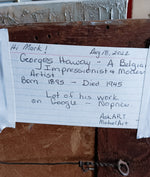 Hi Mark! Aug 18, 2022
Georges Hawdy - A Belgian
Impressionist & Modern
Artist
Born 1895 - Died 1945
Lot of his work
on Google - No price
Ask ART